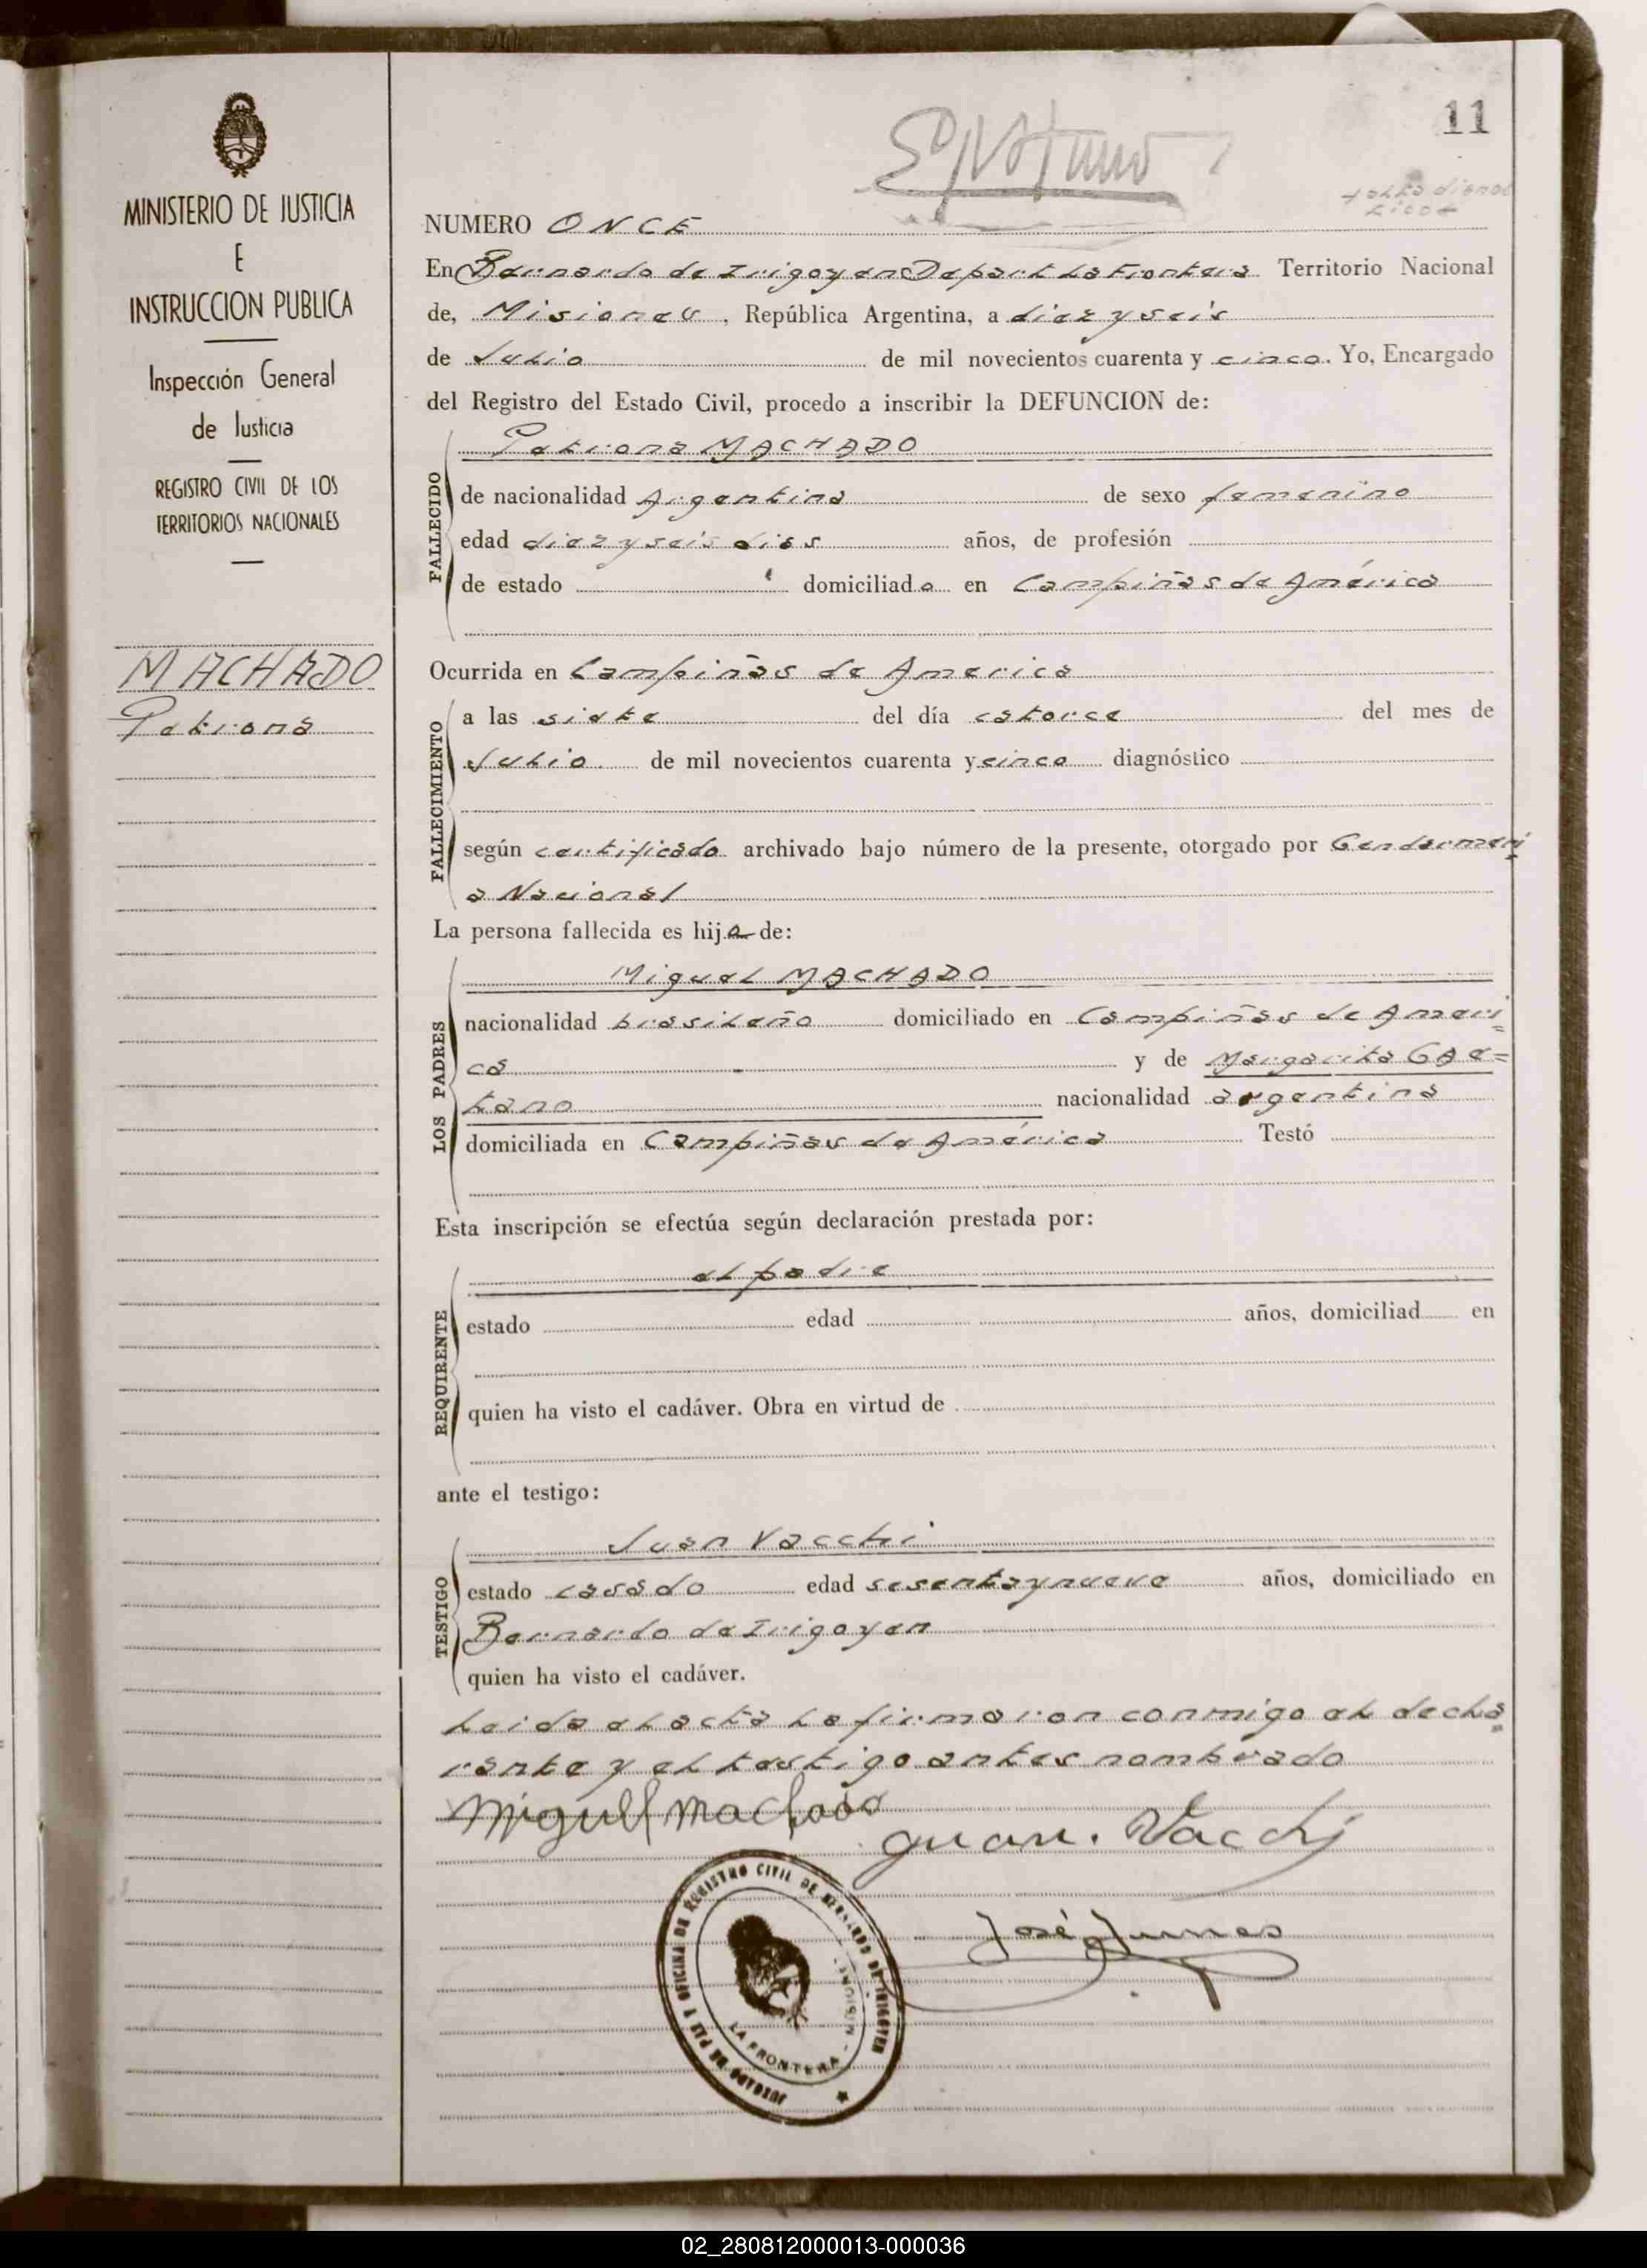 11
MINISTERIO DE JUSTICIA
E
INSTRUCCION PUBLICA
Inspección General
de Justicia
REGISTRO CIVIL DE LOS
TERRITORIOS NACIONALES
MACHADO
Petrona
NUMERO ONCE
En Bernardo de Irigoyen Depart La Frontera Territorio Nacional
de, Misiones, República Argentina, a diez y seis
de Julio de mil novecientos cuarenta y cinco. Yo, Encargado
del Registro del Estado Civil, procedo a inscribir la DEFUNCION de:
Petrona MACHADO
FALLECIDO
de nacionalidad Argentina de sexo femenino
edad diez y seis dias años, de profesión
de estado domiciliada en Campiñas de América
Ocurrida en Campiñas de America
FALLECIMIENTO
a las siete del día catorce del mes de
Julio de mil novecientos cuarenta y cinco diagnóstico
según certificado archivado bajo número de la presente, otorgado por Gendarmeri
a Nacional
La persona fallecida es hija de:
Miguel MACHADO
LOS PADRES
nacionalidad brasileño domiciliado en Campiñas de Ameri=
ca y de Margarita GAE=
tano nacionalidad argentina
domiciliada en Campiñas de América Testó
Esta inscripción se efectúa según declaración prestada por:
el padre
REQUIRENTE
estado edad años, domiciliad en
quien ha visto el cadáver. Obra en virtud de
ante el testigo:
Juan Vacchi
TESTIGO
estado casado edad sesentaynueve años, domiciliado en
Bernardo de Irigoyen
quien ha visto el cadáver.
Leida el acta la firmaron conmigo el decla=
rante y el testigo antes nombrado
Miguel Machado
Juan. Vacchi
José
JUZGADO DE PAZ Y OFICINA DE REGISTRO CIVIL DE BERNARDO DE IRIGOYEN
LA FRONTERA - MISIONES
02_280812000013-000036